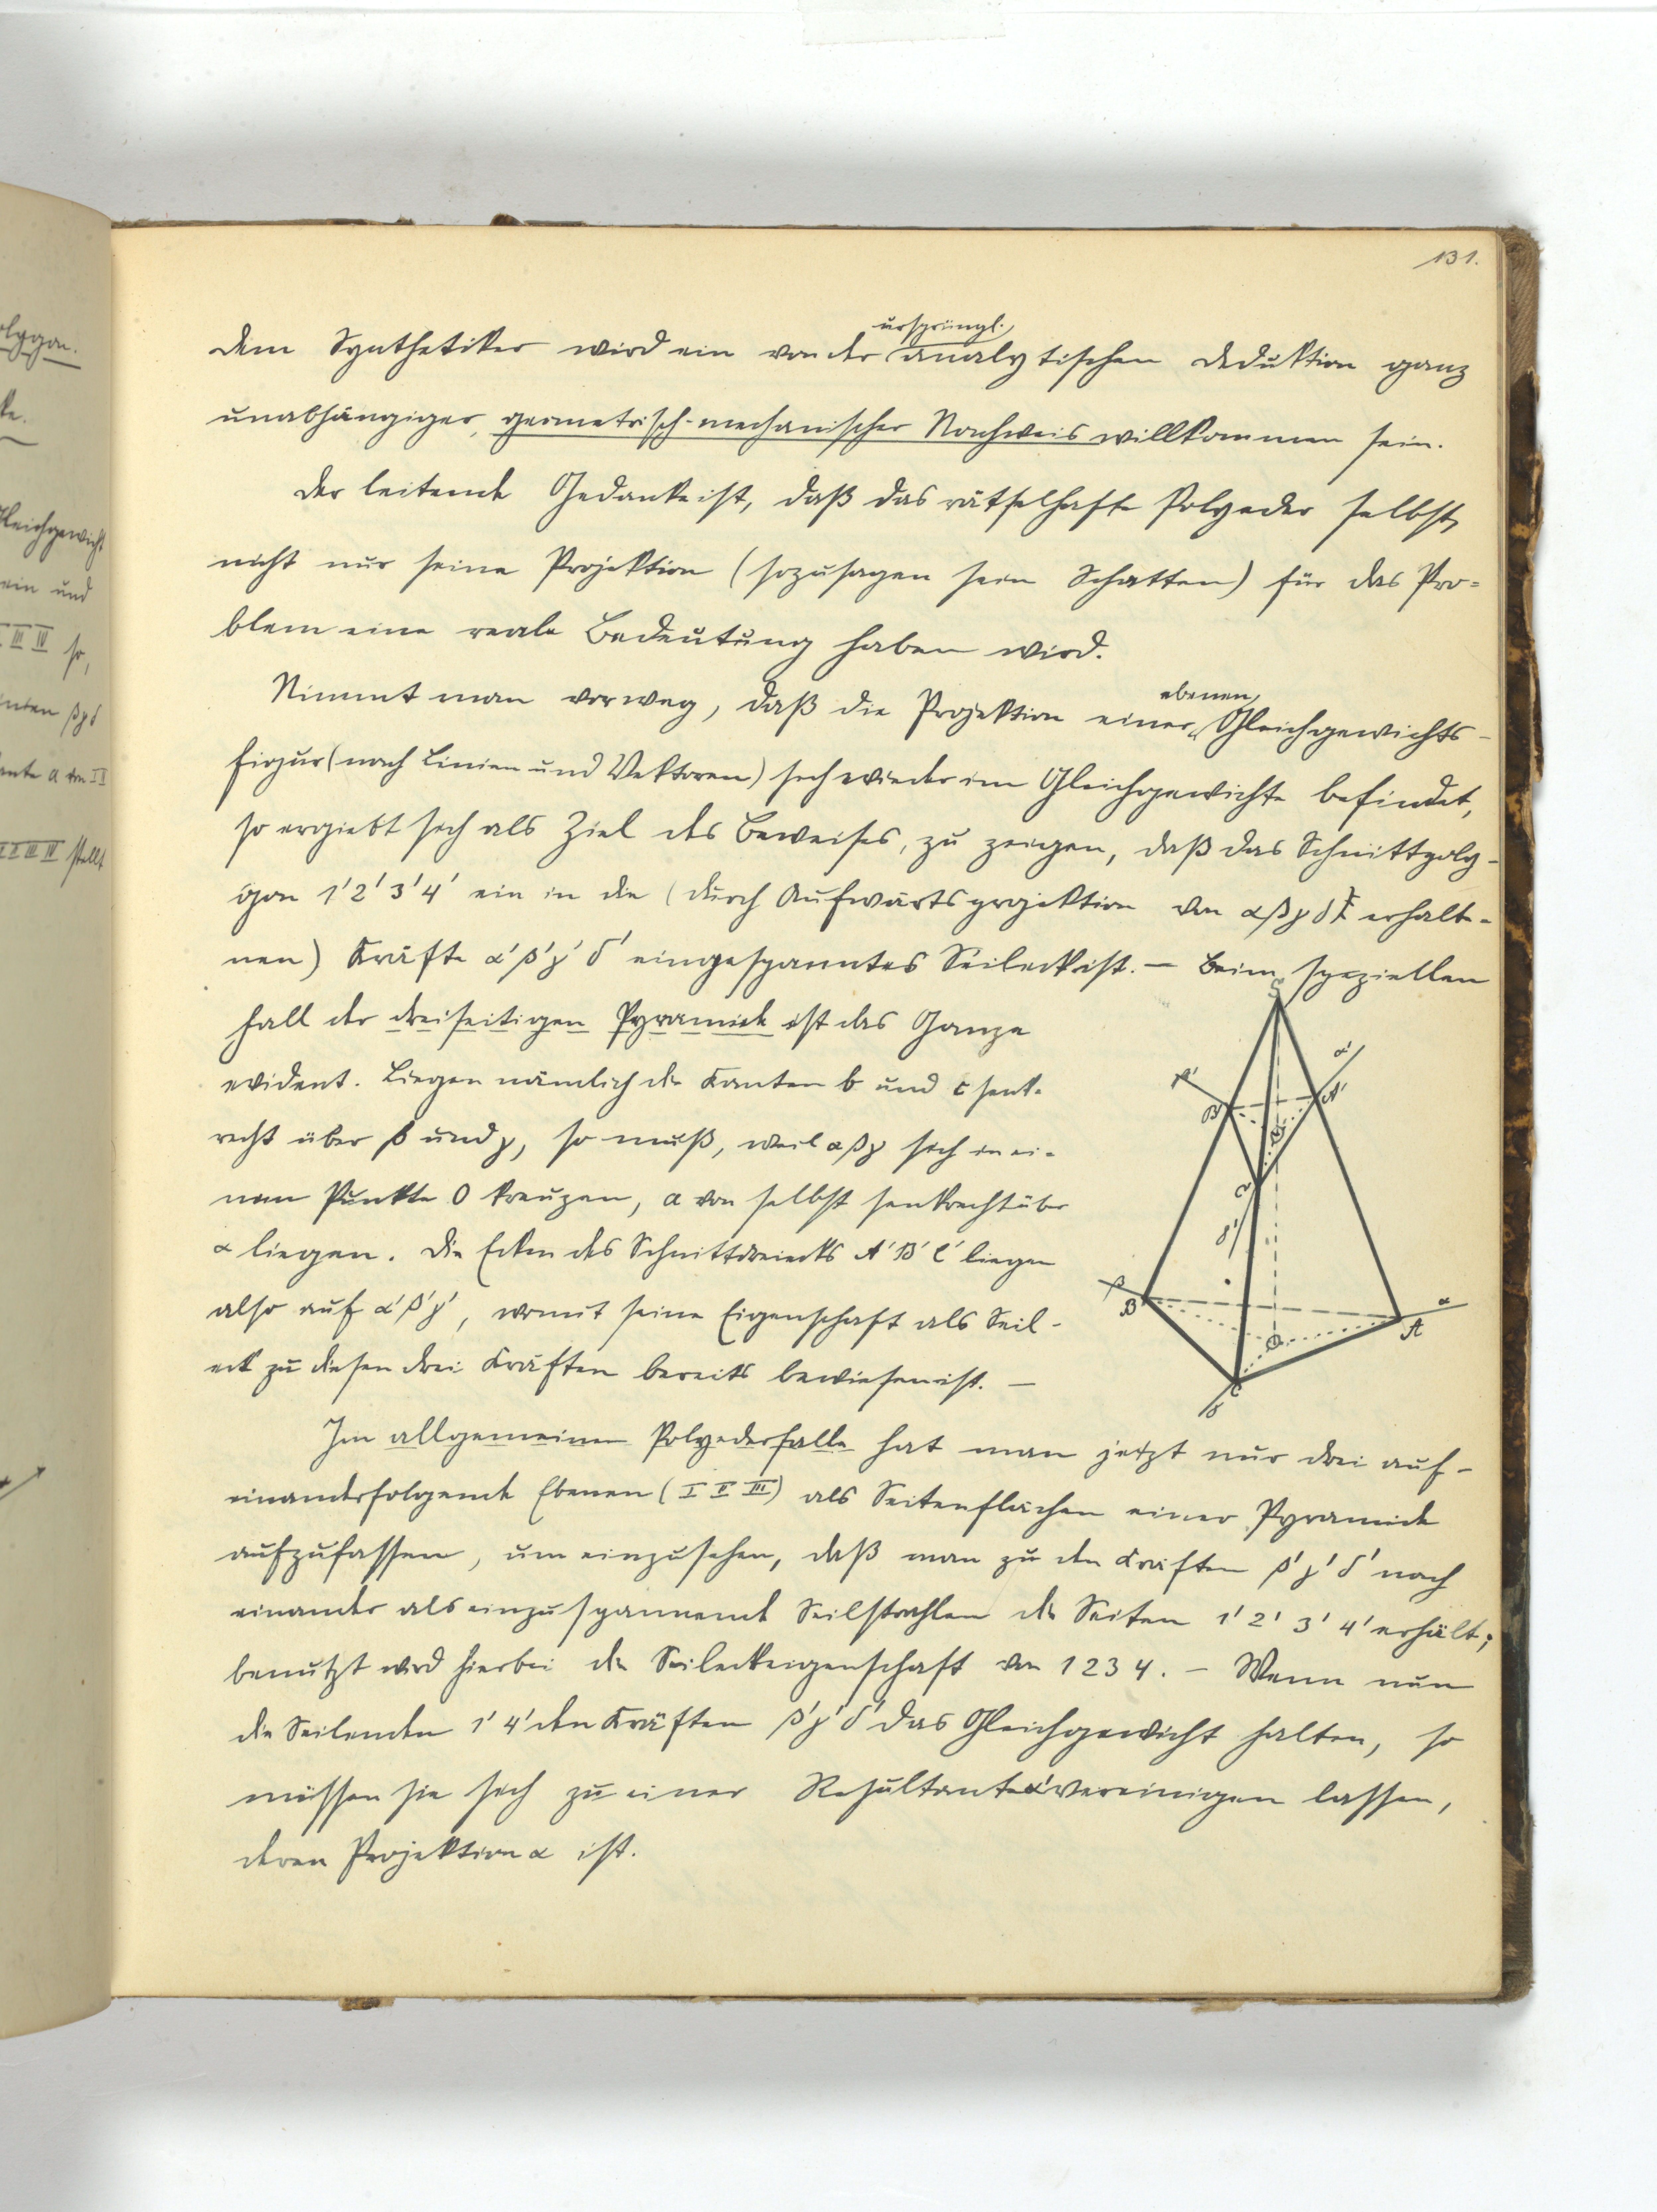 131.
olygon.
ke.
Gleichgewicht
ein und
III IV so,
βγδ
I II III IV stellt
ursprüngl.
dem Synthetiker wird ein von der analytischen Deduktion ganz
unabhängiger, geometrisch-mechanischer Nachweis willkommen sein.
Der leitende Gedanke ist, daß das rätselhafte Polyeder selbst,
nicht nur seine Projektion (sozusagen sein Schatten) für das Pro=
blem eine reale Bedeutung haben wird.
ebenen
Nimmt man vorweg, daß die Projektion einer Gleichgewichts-
figur (nach Linien und Vektoren) sich wieder im Gleichgewichte befindet,
so ergiebt sich als Ziel des Beweises, zu zeigen, daß das Schnittpoly-
gon 1'2'3'4' ein in die (durch Aufwärtsprojektion von αβγδ erhalte-
nen) Kräfte α'β'γ'δ' eingespanntes Seileck ist. — Beim speziellen
Fall der dreiseitigen Pyramide ist das Ganze
evident. Liegen nämlich die Kanten b und c senk-
recht über β und γ, so muß, weil αβγ sich in ei-
nem Punkte O kreuzen, a von selbst senkrecht über
α liegen. Die Ecken des Schnittdreiecks A'B'C' liegen
also auf α'β'γ', womit seine Eigenschaft als Seil-
eck zu diesen drei Kräften bereits bewiesen ist. —
S
α'
β'
B'
A'
C'
γ'
β
B
O
A
α
C
γ
Im allgemeinen Polyederfalle hat man jetzt nur drei auf-
einanderfolgende Ebenen (I II III) als Seitenflächen einer Pyramide
aufzufassen, um einzusehen, daß man zu den Kräften β'γ'δ' nach
einander als einzuspannende Seilstrahlen die Seiten 1' 2' 3' 4' erhält;
benutzt wird hierbei die Seileckeigenschaft von 1234. — Wenn nun
die Seilenden 1'4' den Kräften β'γ'δ' das Gleichgewicht halten, so
müssen sie sich zu einer Resultante α' vereinigen lassen,
deren Projektion α ist.